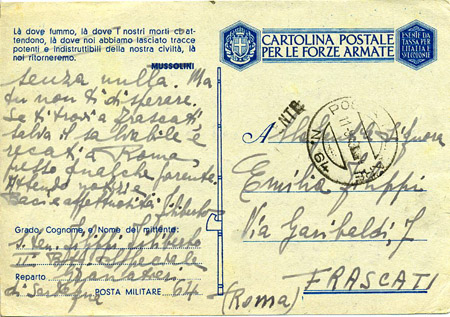 Là dove fummo, là dove i nostri morti ci at-
tendono, là dove noi abbiamo lasciato tracce
potenti e indistruttibili della nostra civiltà, là
noi ritorneremo.
MUSSOLINI
senza nulla. Ma
tu non ti disperare.
Se ti trovi a Frascati
salva il salvabile e
recati a Roma,
presso qualche parente.
Attendo notizie
Baci affettuosi
Grado, Cognome, e Nome del mittente:
s. ten. Filippi
II° Btg. Speciale
Reparto Granatieri
di Sardegna POSTA MILITARE 64
CARTOLINA POSTALE
PER LE FORZE ARMATE
ESENTE DA
TASSA PER
L'ITALIA E
N. 64
A
Signora
Emilia Filippi
Via Garibaldi, 7
FRASCATI
(Roma)